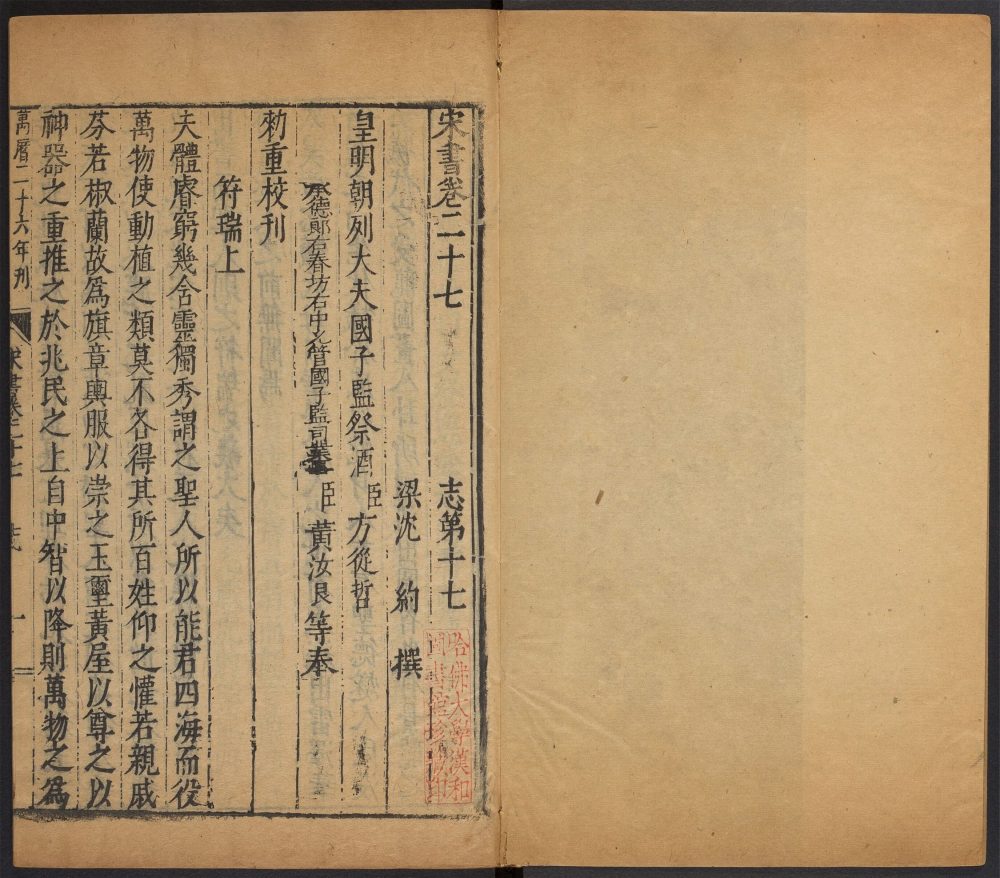 宋書卷二十七 志第十七
梁沈 約 撰
皇明朝列大夫國子監祭酒臣方從哲
承德郎右春坊右中允管國子監司業事臣黃汝良等奉
勑重校刊
符瑞上
夫體睿窮幾含靈獨秀謂之聖人所以能君四海而役
萬物使動植之類莫不各得其所百姓仰之懽若親戚
芬若椒蘭故爲旗章輿服以崇之玉璽黃屋以尊之以
神器之重推之於兆民之上自中智以降則萬物之爲
萬曆二十六年刊
宋書卷二十七
一
哈佛大學漢和
圖書館珍藏印